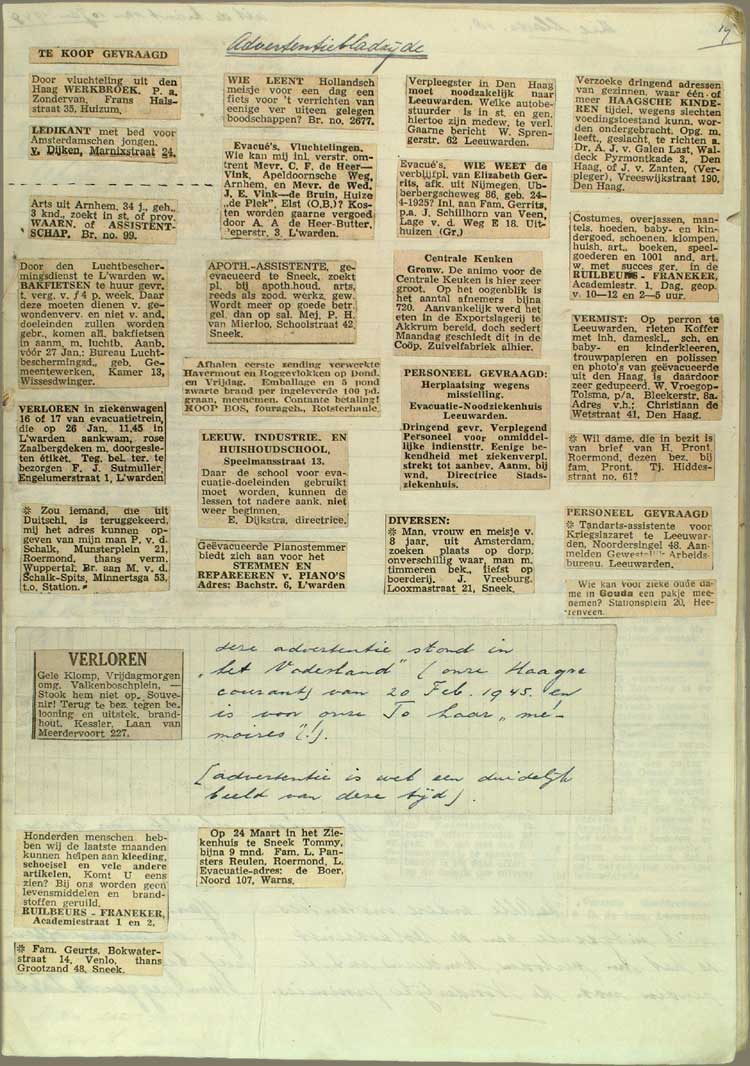 19
Advertentiebladzijde
TE KOOP GEVRAAGD
Door vluchteling uit den
Haag WERKBROEK. P. a.
Zondervan, Frans Hals-
straat 35, Huizum.
LEDIKANT met bed voor
Amsterdamschen jongen.
v. Dijken, Marnixstraat 24.
Arts uit Arnhem, 34 j., geh.,
3 knd., zoekt in st. of prov.
WAARN. of ASSISTENT-
SCHAP. Br. no. 99.
Door den Luchtbescher-
mingsdienst te L'warden w.
BAKFIETSEN te huur gevr.
t. verg. v. f 4 p. week. Daar
deze moeten dienen v. ge-
wondenverv. en niet v. and.
doeleinden zullen worden
gebr., komen all. bakfietsen
in aanm. m. luchtb. Aanb.
vóór 27 Jan.: Bureau Lucht-
beschermingsd., geb. Ge-
meentewerken, Kamer 13,
Wissesdwinger.
VERLOREN in ziekenwagen
16 of 17 van evacuatietrein,
die op 26 Jan. 11.45 in
L'warden aankwam, rose
Zaalbergdeken m. doorgesle-
ten étiket. Teg. bel. ter. te
bezorgen F. J. Sutmuller,
Engelumerstraat 1, L'warden
※ Zou iemand, die uit
Duitschl. is teruggekeerd,
mij het adres kunnen op-
geven van mijn man P. v. d.
Schalk, Munsterplein 21,
Roermond, thans verm.
Wuppertal. Br. aan M. v. d.
Schalk-Spits, Minnertsga 53,
t.o. Station.
WIE LEENT Hollandsch
meisje voor een dag een
fiets voor 't verrichten van
eenige ver uiteen gelegen
boodschappen? Br. no. 2677.
Evacué's, Vluchtelingen.
Wie kan mij inl. verstr. om-
trent Mevr. C. F. de Heer—
Vink, Apeldoornsche Weg,
Arnhem, en Mevr. de Wed.
J. E. Vink—de Bruin, Huize
„de Plek", Elst (O.B.)? Kos-
ten worden gaarne vergoed
door A. A de Heer-Butter,
'eperstr. 3, L'warden.
APOTH.-ASSISTENTE, ge-
evacueerd te Sneek, zoekt
pl. bij apoth.houd. arts,
reeds als zood. werkz. gew.
Wordt meer op goede betr.
gel. dan op sal. Mej. P. H.
van Mierloo, Schoolstraat 42,
Sneek.
Afhalen eerste zending verwerkte
Havermout en Roggevlokken op Dond.
en Vrijdag. Emballage en 5 pond
zwarte brand per ingeleverde 100 pd.
graan, meenemen. Contante betaling!
KOOP BOS, fouragеh., Rotsterhaule.
LEEUW. INDUSTRIE. EN
HUISHOUDSCHOOL,
Speelmansstraat 13.
Daar de school voor eva-
cuatie-doeleinden gebruikt
moet worden, kunnen de
lessen tot nadere aank. niet
weer beginnen.
E. Dijkstra, directrice.
Geëvacueerde Pianostemmer
biedt zich aan voor het
STEMMEN EN
REPAREEREN v. PIANO'S
Adres: Bachstr. 6, L'warden
Verpleegster in Den Haag
moet noodzakelijk naar
Leeuwarden. Welke autobe-
stuurder is in st. en gen.
hiertoe zijn medew. te verl.
Gaarne bericht W. Spren-
gerstr. 62 Leeuwarden.
Evacué's, WIE WEET de
verblijfpl. van Elizabeth Ger-
rits, afk. uit Nijmegen, Ub-
berbergscheweg 86, geb. 24-
4-1925? Inl. aan Fam. Gerrits,
p.a. J. Schillhorn van Veen,
Lage v. d. Weg E 18. Uit-
huizen (Gr.)
Centrale Keuken
Grouw. De animo voor de
Centrale Keuken is hier zeer
groot. Op het oogenblik is
het aantal afnemers bijna
720. Aanvankelijk werd het
eten in de Exportslagerij te
Akkrum bereid, doch sedert
Maandag geschiedt dit in de
Coöp. Zuivelfabriek alhier.
PERSONEEL GEVRAAGD:
Herplaatsing wegens
misstelling.
Evacuatie-Noodziekenhuis
Leeuwarden.
Dringend gevr. Verplegend
Personeel voor onmiddel-
lijke indienstr. Eenige be-
kendheid met ziekenverpl.
strekt tot aanbev. Aanm. bij
wnd. Directrice Stads-
ziekenhuis.
DIVERSEN:
※ Man, vrouw en meisje v.
8 jaar, uit Amsterdam,
zoeken plaats op dorp,
onverschillig waar, man m.
timmeren bek., liefst op
boerderij. J. Vreeburg,
Looxmastraat 21, Sneek.
Verzoeke dringend adressen
van gezinnen, waar één of
meer HAAGSCHE KINDE-
REN tijdel. wegens slechten
voedingstoestand kunn. wor-
den ondergebracht. Opg. m.
leeft., geslacht, te richten a.
Dr. A. J. v. Galen Last, Wal-
deck Pyrmontkade 3, Den
Haag, of J. v. Zanten, (Ver-
pleger), Vreeswijkstraat 190,
Den Haag.
Costumes, overjassen, man-
tels, hoeden, baby- en kin-
dergoed, schoenen, klompen,
huish. art., boeken, speel-
goederen en 1001 and. art.
w. met succes ger. in de
RUILBEURS - FRANEKER,
Academiestr. 1. Dag. geop.
v. 10—12 en 2—5 uur.
VERMIST: Op perron te
Leeuwarden, rieten Koffer
met inh. dameskl., sch. en
baby- en kinderkleeren,
trouwpapieren en polissen
en photo's van geëvacueerde
uit den Haag, is daardoor
zeer gedupeerd. W. Vroegop-
Tolsma, p/a. Bleekerstr. 8a.
Adres v.h.: Christiaan de
Wetstraat 41, Den Haag.
※ Wil dame, die in bezit is
van brief van H. Pront,
Roermond, dezen bez. bij
fam. Pront. Tj. Hiddes-
straat no. 61?
PERSONEEL GEVRAAGD
※ Tandarts-assistente voor
Kriegslazaret te Leeuwar-
den, Noordersingel 48. Aan-
melden Gewestelijk Arbeids-
bureau, Leeuwarden.
Wie kan voor zieke oude da-
me in Gouda een pakje mee-
nemen? Stationsplein 20, Hee-
renveen.
VERLOREN
Gele Klomp, Vrijdagmorgen
omg. Valkenboschplein, —
Stook hem niet op. Souve-
nir! Terug te bez. tegen be-
looning en uitstek. brand-
hout. Kessler, Laan van
Meerdervoort 227.
deze advertentie stond in
„het Vaderland" (onze Haagse
courant) van 20 Feb. 1945. en
is voor onze To haar „mé-
moires"(!).
[advertentie is wel een duidelijk
beeld van deze tijd].
Honderden menschen heb-
ben wij de laatste maanden
kunnen helpen aan kleeding,
schoeisel en vele andere
artikelen. Komt U eens
zien? Bij ons worden geen
levensmiddelen en brand-
stoffen geruild.
RUILBEURS - FRANEKER,
Academiestraat 1 en 2.
※ Fam. Geurts, Bokwater-
straat 14, Venlo, thans
Grootzand 48, Sneek.
Op 24 Maart in het Zie-
kenhuis te Sneek Tommy,
bijna 9 mnd. Fam. L. Pan-
sters Reulen, Roermond, L.
Evacuatie-adres: de Boer,
Noord 107, Warns.